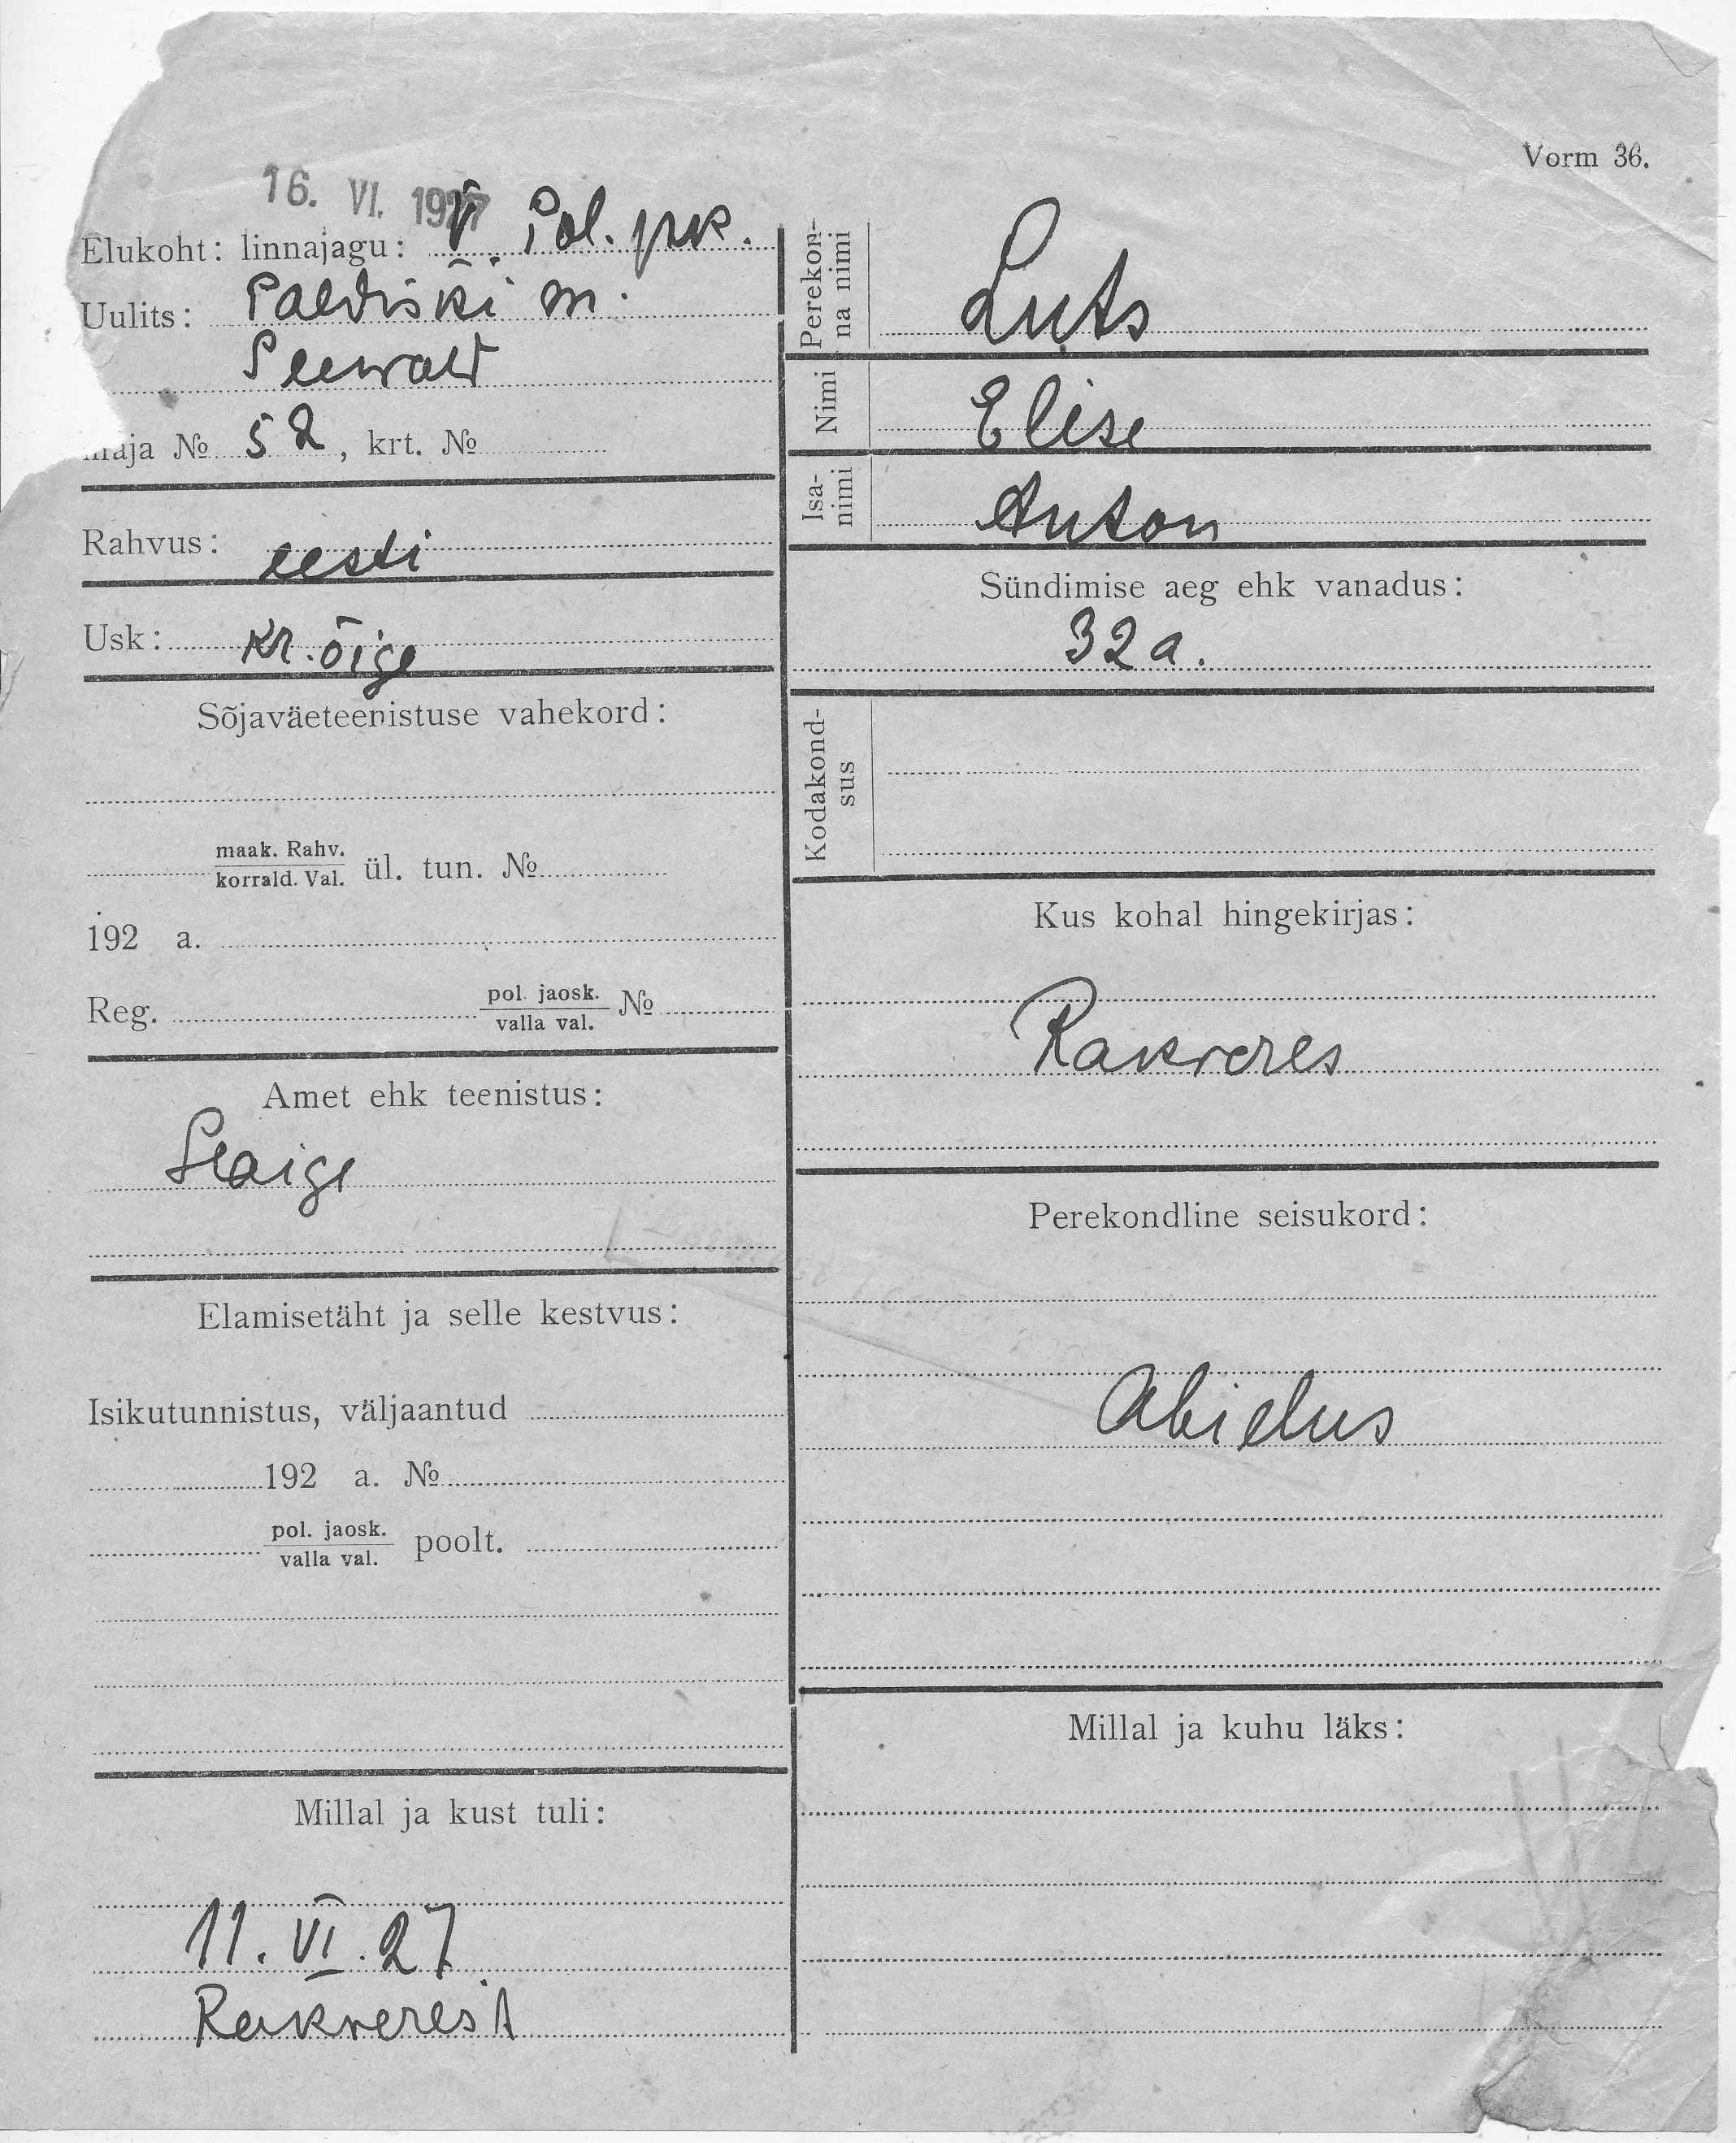 Vorm 36.
16. VI. 1927
Elukoht: linnajagu: V. Pol. jsk.
Uulits: Paldiski m.
Seewald
maja № 52, krt. №
Rahvus: eesti
Usk: kr. õige
Sõjaväeteenistuse vahekord:
maak. Rahv.
korrald. Val. ül. tun. №
192 a.
Reg. pol. jaosk. №
valla val.
Amet ehk teenistus:
Haige
Elamisetäht ja selle kestvus:
Isikutunnistus, väljaantud
192 a. №
pol. jaosk.
valla val. poolt.
Millal ja kust tuli:
11. VI. 27
Rakverest
Perekon-
na nimi
Luts
Nimi
Elise
Isa-
nimi
Anton
Sündimise aeg ehk vanadus:
32 a.
Kodakond-
sus
Kus kohal hingekirjas:
Rakveres
Perekondline seisukord:
Abielus
Millal ja kuhu läks: